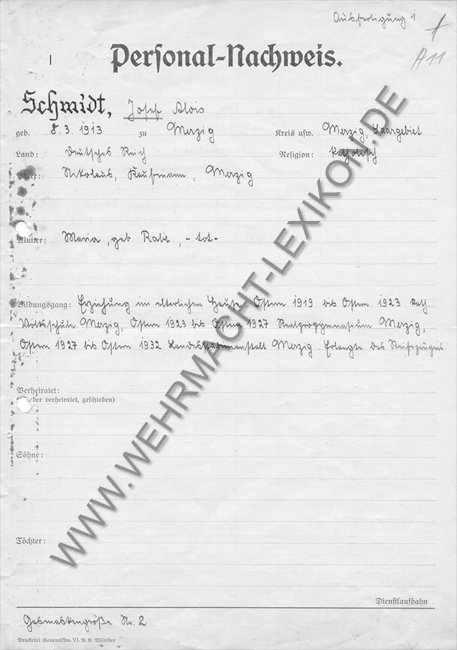 Ausfertigung 1
A11
Personal-Nachweis.
Schmidt, Josef Alois
geb. 8.3.1913 zu Merzig Kreis usw. Merzig, Saargebiet
Land: Deutsches Reich Religion: katholisch
Vater: Nikolaus, Kaufmann, Merzig
Mutter: Maria, geb. Rabe, -tot-
Bildungsgang: Erziehung im elterlichen Hause. Ostern 1919 bis Ostern 1923 kath.
Volksschule Merzig, Ostern 1923 bis Ostern 1927 Realprogymnasium Merzig,
Ostern 1927 bis Ostern 1932 Merzig. Erlangte das Reifezeugnis
Verheiratet:
(Wieder verheiratet, geschieden)
Söhne:
Töchter:
Dienstlaufbahn
Gasmaskengröße Nr. 2
Druckerei Generalkdo. VI. A. K. Münster
WWW.WEHRMACHT-LEXIKON.DE